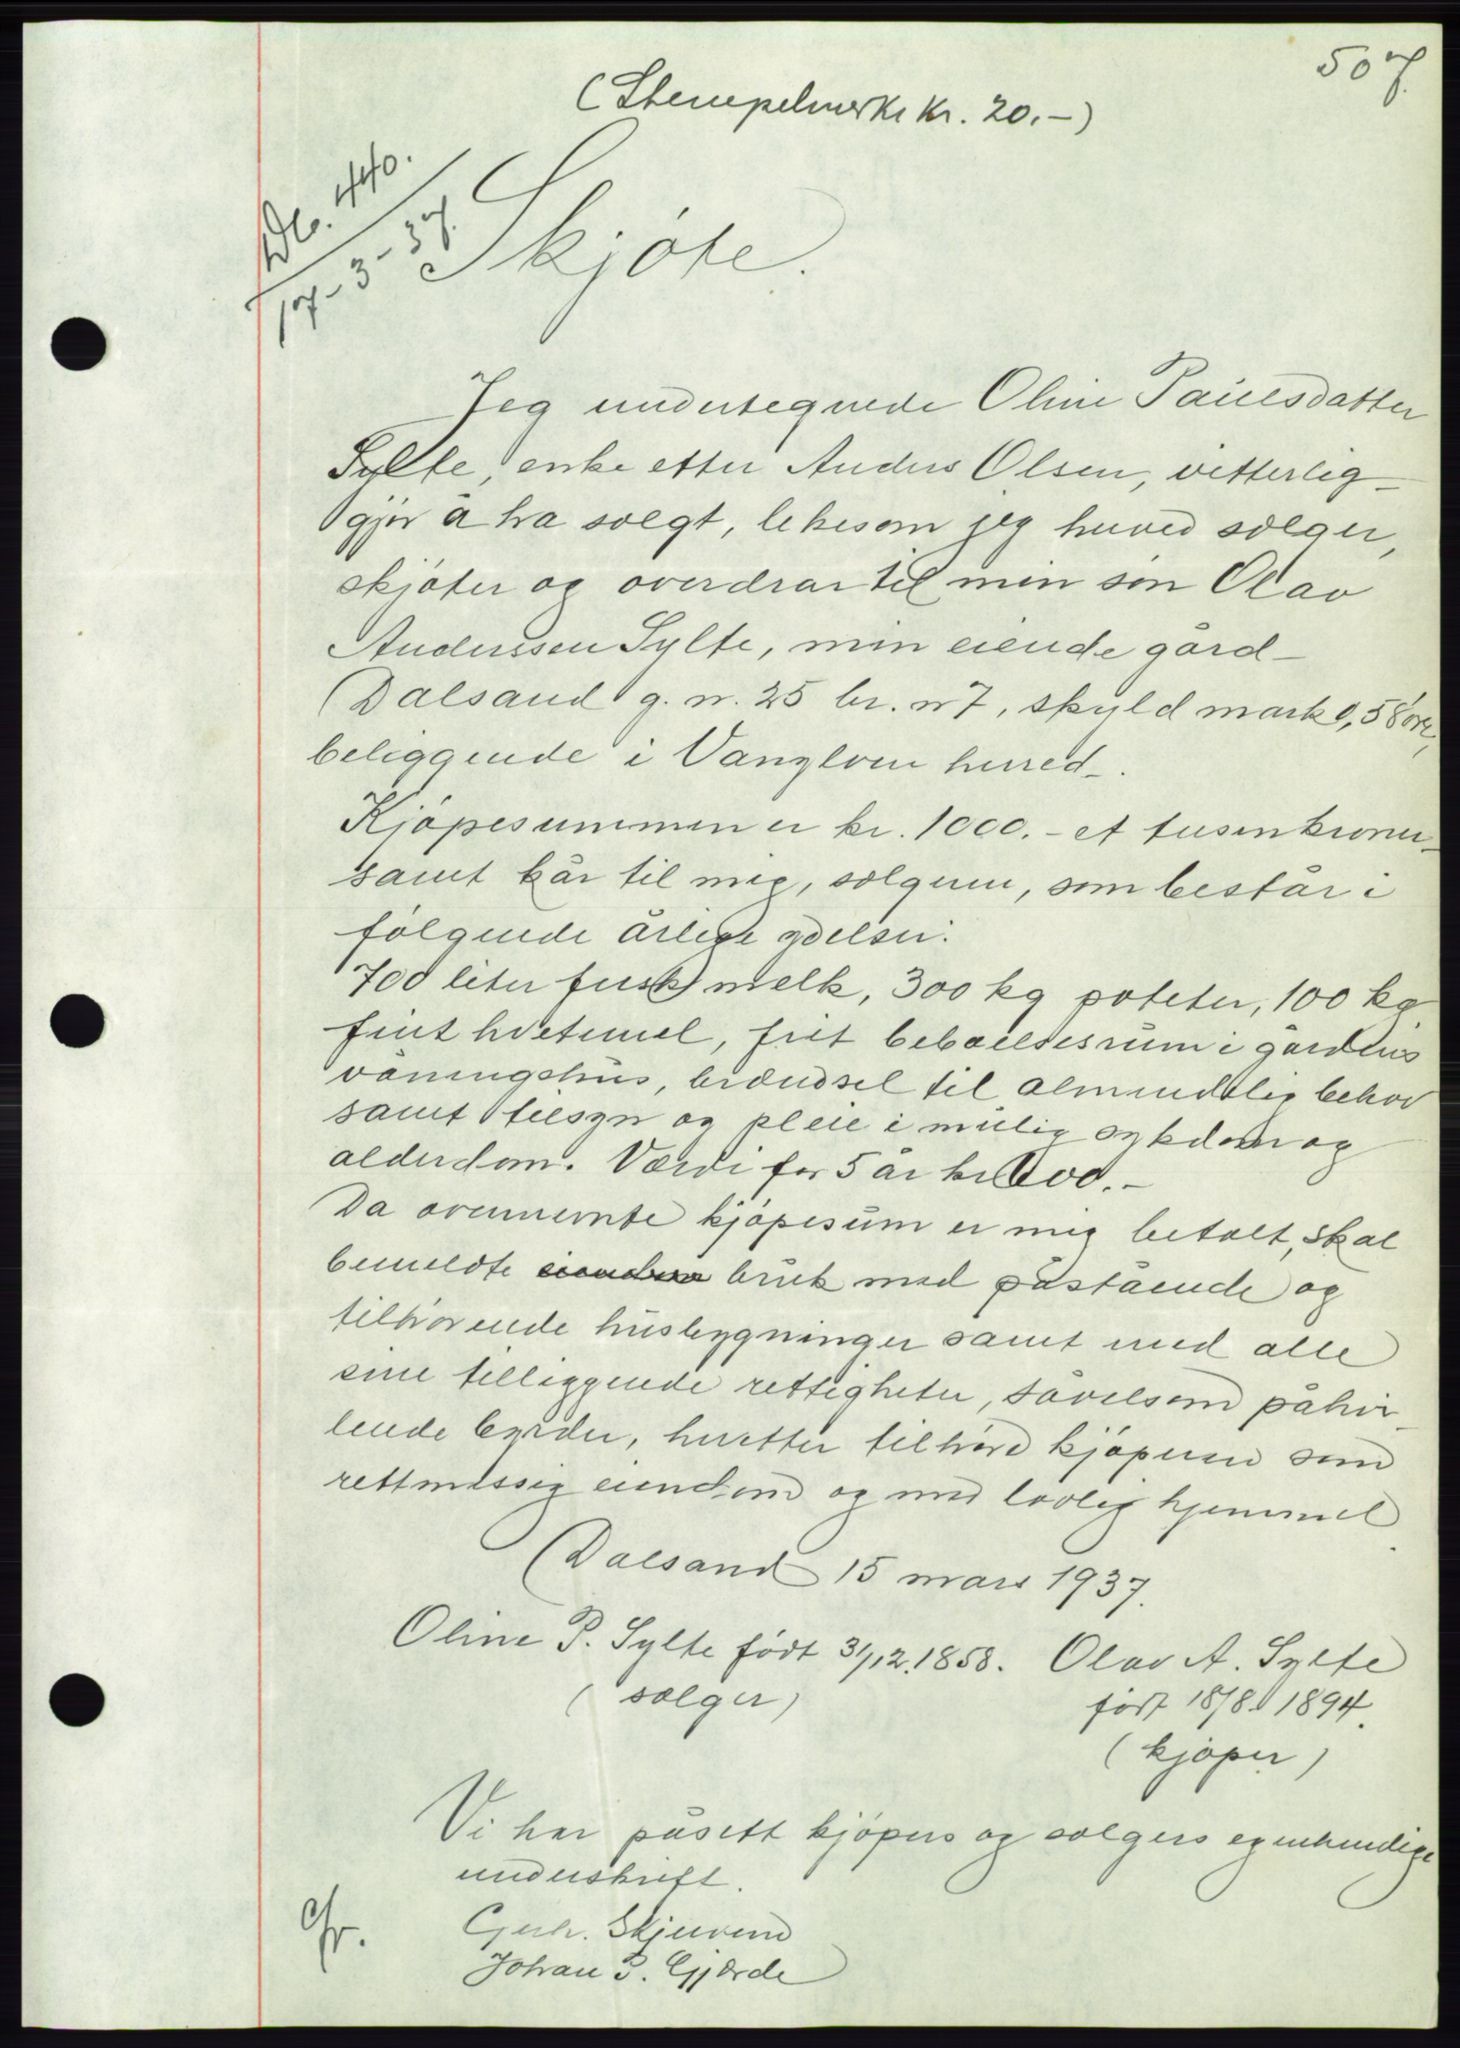 507
(Stempelmerke kr. 20.-)
Db. 440.
17-3-37.
Skjöte.
Jeg undertegnede Oline Paulsdatter
Sylte, enke etter Anders Olsen, vitterlig-
gjör å ha solgt, likesom jeg herved selger,
skjöter og overdrar til min sön Olav
Anderssen Sylte, min eiende gård-
Dalsand g. nr. 25 br. nr 7, skyld mark 0,58 öre,
beliggende i Vanylven herred-.
Kjöpesummen er kr. 1000.- et tusen kroner-
samt kår til mig, selgeren, som består i
følgende årlige ydelser:
700 liter fersk melk, 300 kg poteter, 100 kg
fint hvetemel, frit beboelsesrum i gårdens
våningshus, brændsel til almindelig behov
samt tilsyn og pleie i mulig sykdom og
alderdom. Værdi for 5 år kr. 600.-
Da ovennevnte kjöpesum er mig betalt, skal
bemeldte bruk med påstående og
tilhörende husbygninger samt med alle
sine tilliggende rettigheter, såvelsom påhvi-
lende byrder, herefter tilhöre kjöperen som
rettmessig eiendom og med lovlig hjemmel.
Dalsand 15 mars 1937.
Oline P. Sylte født 31/12.1858. Olav A. Sylte
(selger) født 18/8 1894.
(kjöper)
Vi har påsett kjöpers og selgers egenhendige
underskrift.
Gerh. Skjerven
Johan P. Gjærde